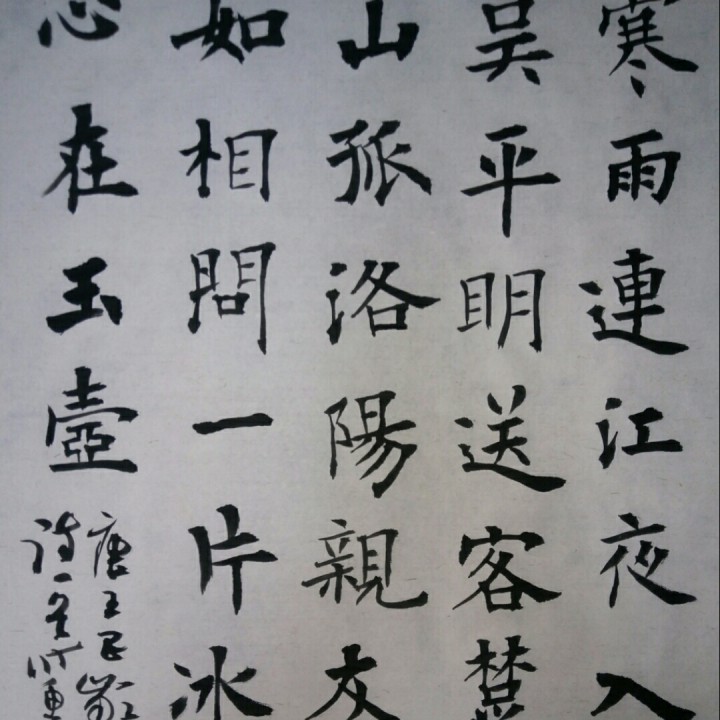 寒雨連江夜入
吴平明送客楚
山孤洛陽親友
如相問一片冰
心在玉壺
唐王昌齡
詩一首